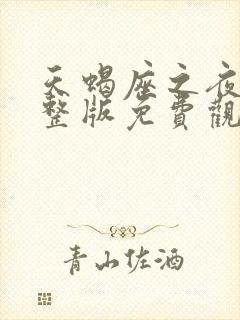 天蝎座之夜
整版免費觀
青山佐酒